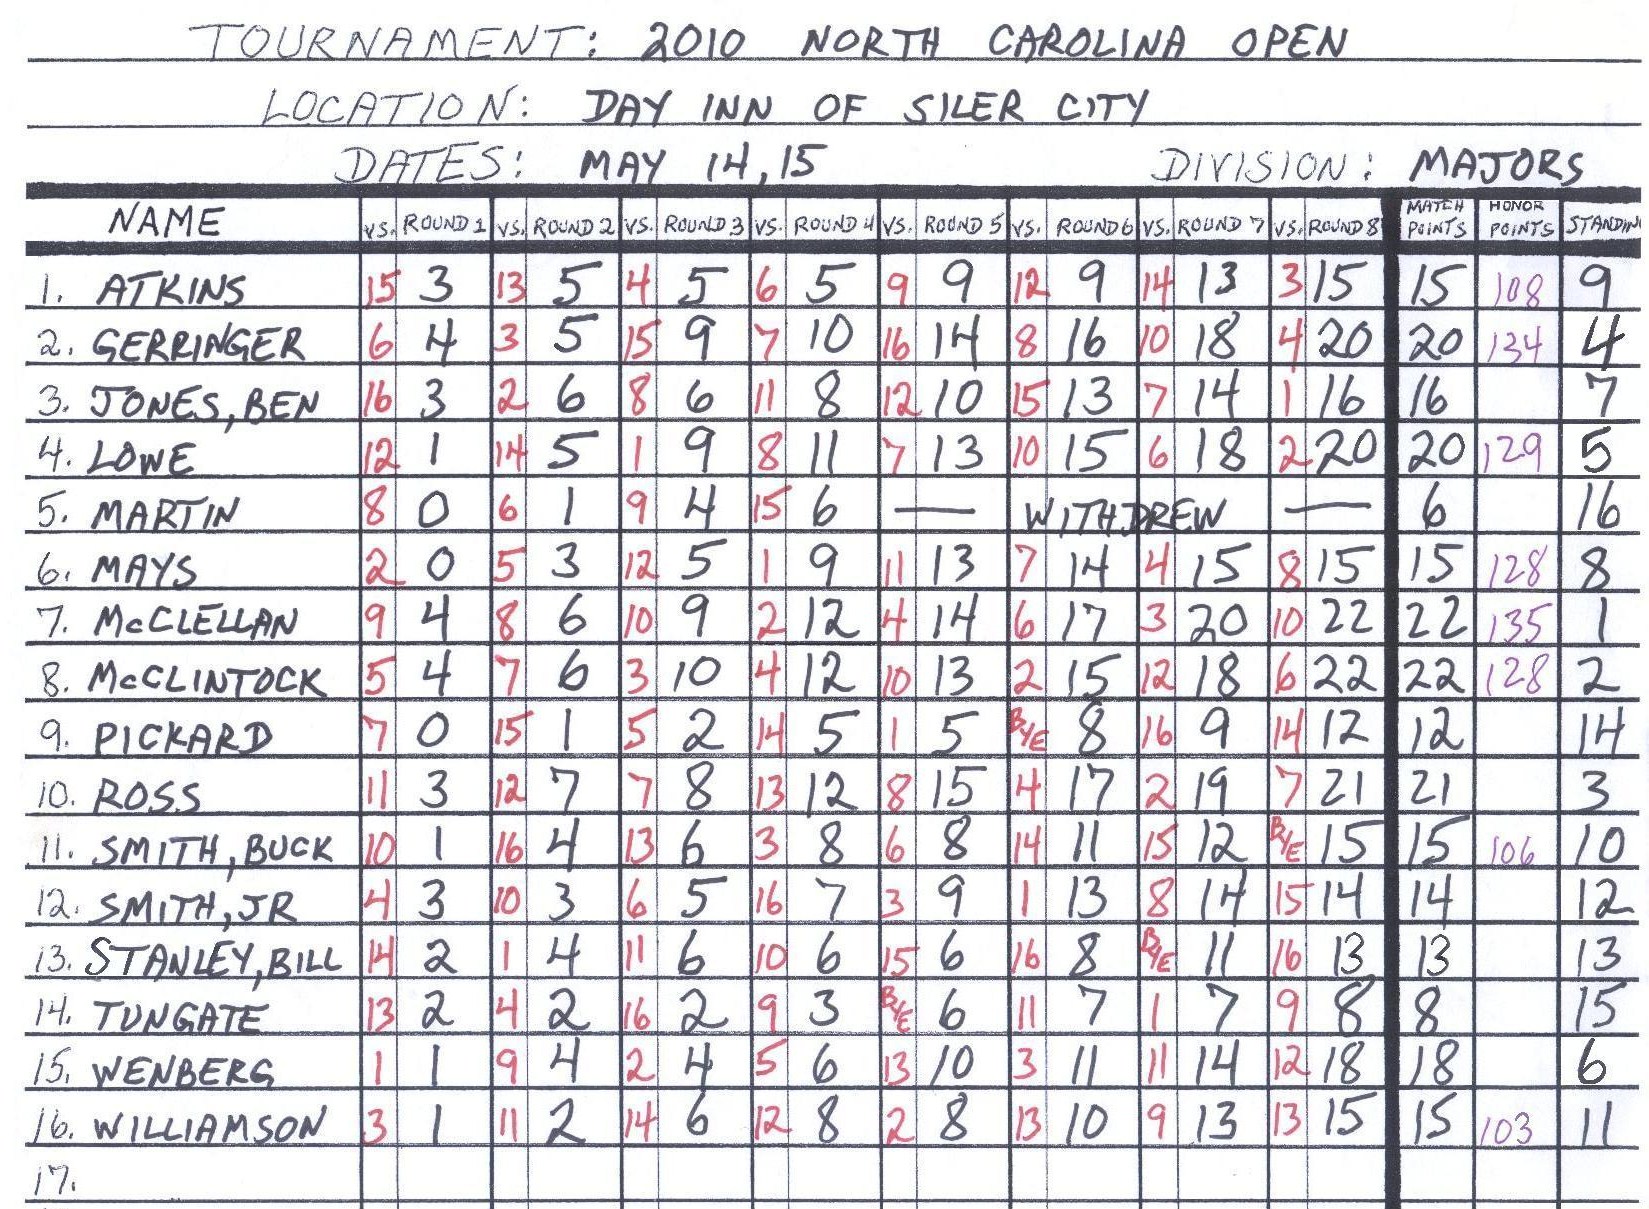 TOURNAMENT: 2010 NORTH CAROLINA OPEN
LOCATION: DAY INN OF SILER CITY
DATES: MAY 14,15 DIVISION: MAJORS
NAME VS. ROUND 1 VS. ROUND 2 VS. ROUND 3 VS. ROUND 4 VS. ROUND 5 VS. ROUND 6 VS. ROUND 7 VS. ROUND 8 MATCH POINTS HONOR POINTS STANDIN
1. ATKINS 15 3 13 5 4 5 6 5 9 9 12 9 14 13 3 15 15 108 9
2. GERRINGER 6 4 3 5 15 9 7 10 16 14 8 16 10 18 4 20 20 134 4
3. JONES, BEN 16 3 2 6 8 6 11 8 12 10 15 13 7 14 1 16 16 7
4. LOWE 12 1 14 5 1 9 8 11 7 13 10 15 6 18 2 20 20 129 5
5. MARTIN 8 0 6 1 9 4 15 6 — WITHDREW — 6 16
6. MAYS 2 0 5 3 12 5 1 9 11 13 7 14 4 15 8 15 15 128 8
7. McCLELLAN 9 4 8 6 10 9 2 12 4 14 6 17 3 20 10 22 22 135 1
8. McCLINTOCK 5 4 7 6 3 10 4 12 10 13 2 15 12 18 6 22 22 128 2
9. PICKARD 7 0 15 1 5 2 14 5 1 5 BYE 8 16 9 14 12 12 14
10. ROSS 11 3 12 7 7 8 13 12 8 15 4 17 2 19 7 21 21 3
11. SMITH, BUCK 10 1 16 4 13 6 3 8 6 8 14 11 15 12 BYE 15 15 106 10
12. SMITH, JR 4 3 10 3 6 5 16 7 3 9 1 13 8 14 15 14 14 12
13. STANLEY, BILL 14 2 1 4 11 6 10 6 15 6 16 8 BYE 11 16 13 13 13
14. TUNGATE 13 2 4 2 16 2 9 3 BYE 6 11 7 1 7 9 8 8 15
15. WENBERG 1 1 9 4 2 4 5 6 13 10 3 11 11 14 12 18 18 6
16. WILLIAMSON 3 1 11 2 14 6 12 8 2 8 13 10 9 13 13 15 15 103 11
17.